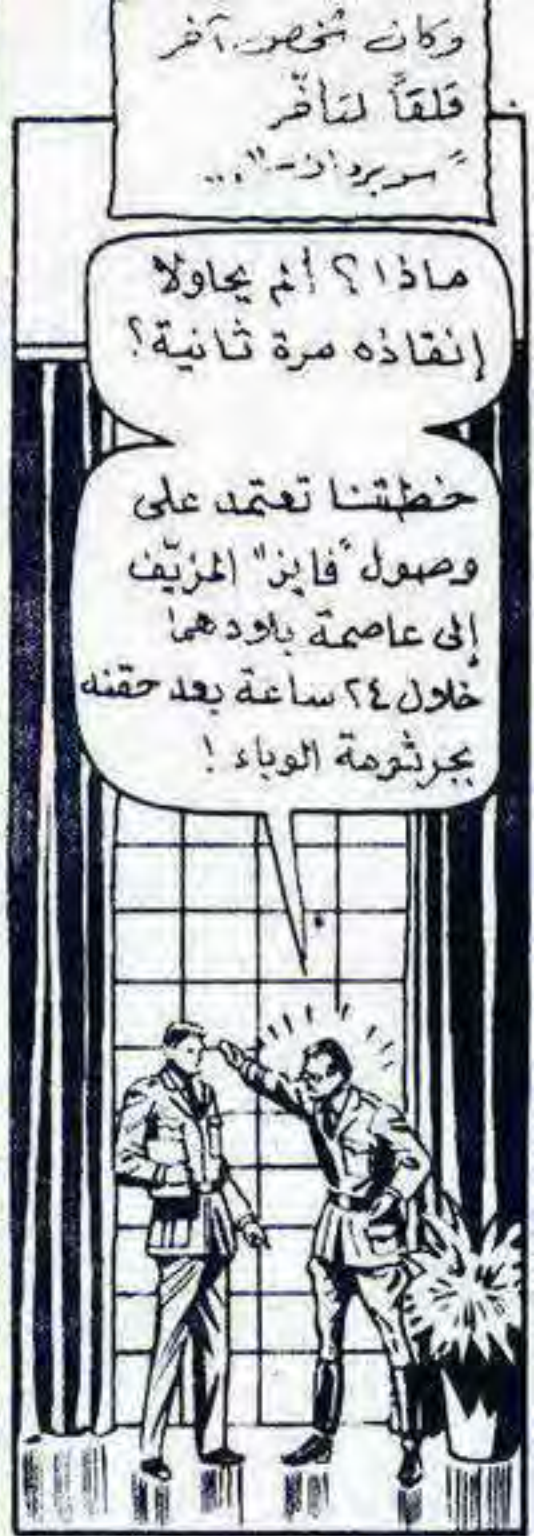 وكان شخص آخر
قلقاً لتأخّر
"سوبرمان"...
ماذا؟ ألم يحاولا
إنقاذه مرة ثانية؟
خطتنا تعتمد على
وصول "فايز" المزيّف
إلى عاصمة بلودهما
خلال ٢٤ ساعة بعد حقنه
بجرثومة الوباء!